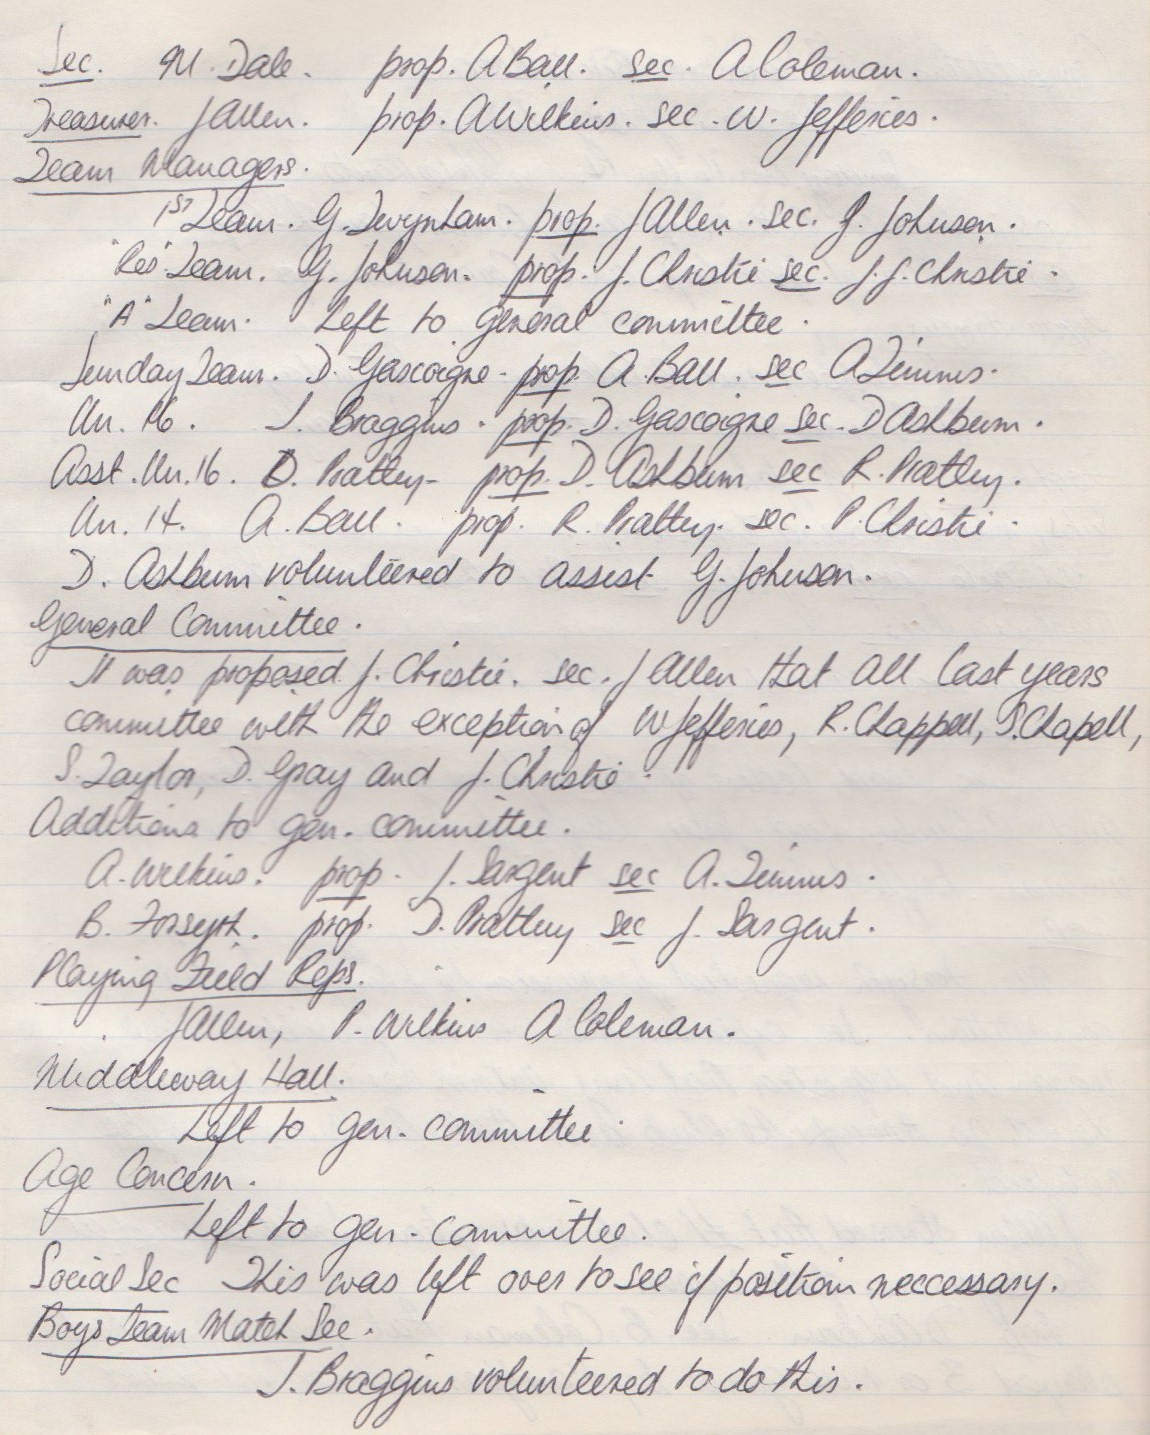 Sec. M. Dale. prop. A Ball. sec. A Coleman.
Treasurer. J Allen. prop. A Wilkins. sec. W. Jefferies.
Team Managers.
1ST Team. G. Twynham. prop. J Allen. sec. G. Johnson.
"Res" Team. G. Johnson. prop. J. Christie sec. J. J. Christie.
"A" Team. Left to general committee.
Sunday Team. D. Gascoigne - prop. A. Ball. sec A Timms.
Un. 16. J. Braggins. prop. D. Gascoigne sec. D Ashburn.
Asst. Un. 16. D. Pratley - prop. D. Ashburn sec R. Pratley.
Un. 14. A. Ball. prop. R. Pratley. sec. P. Christie.
D. Ashburn volunteered to assist G. Johnson.
General Committee.
It was proposed J. Christie. sec. J Allen that all last years
committee with the exception of W Jefferies, R. Chappell, S. Chapell,
S. Taylor, D. Gray and J. Christie.
Additions to gen. committee.
A. Wilkins. prop. J. Sargent sec A. Timms.
B. Forsyth. prop. D. Pratley sec J. Sargent.
Playing Field Reps.
J Allen, P. Wilkins A Coleman.
Middleway Hall.
Left to gen. committee
Age Concern.
Left to gen. committee.
Social Sec This was left over to see if position neccessary.
Boys Team Match Sec.
J. Braggins volunteered to do this.